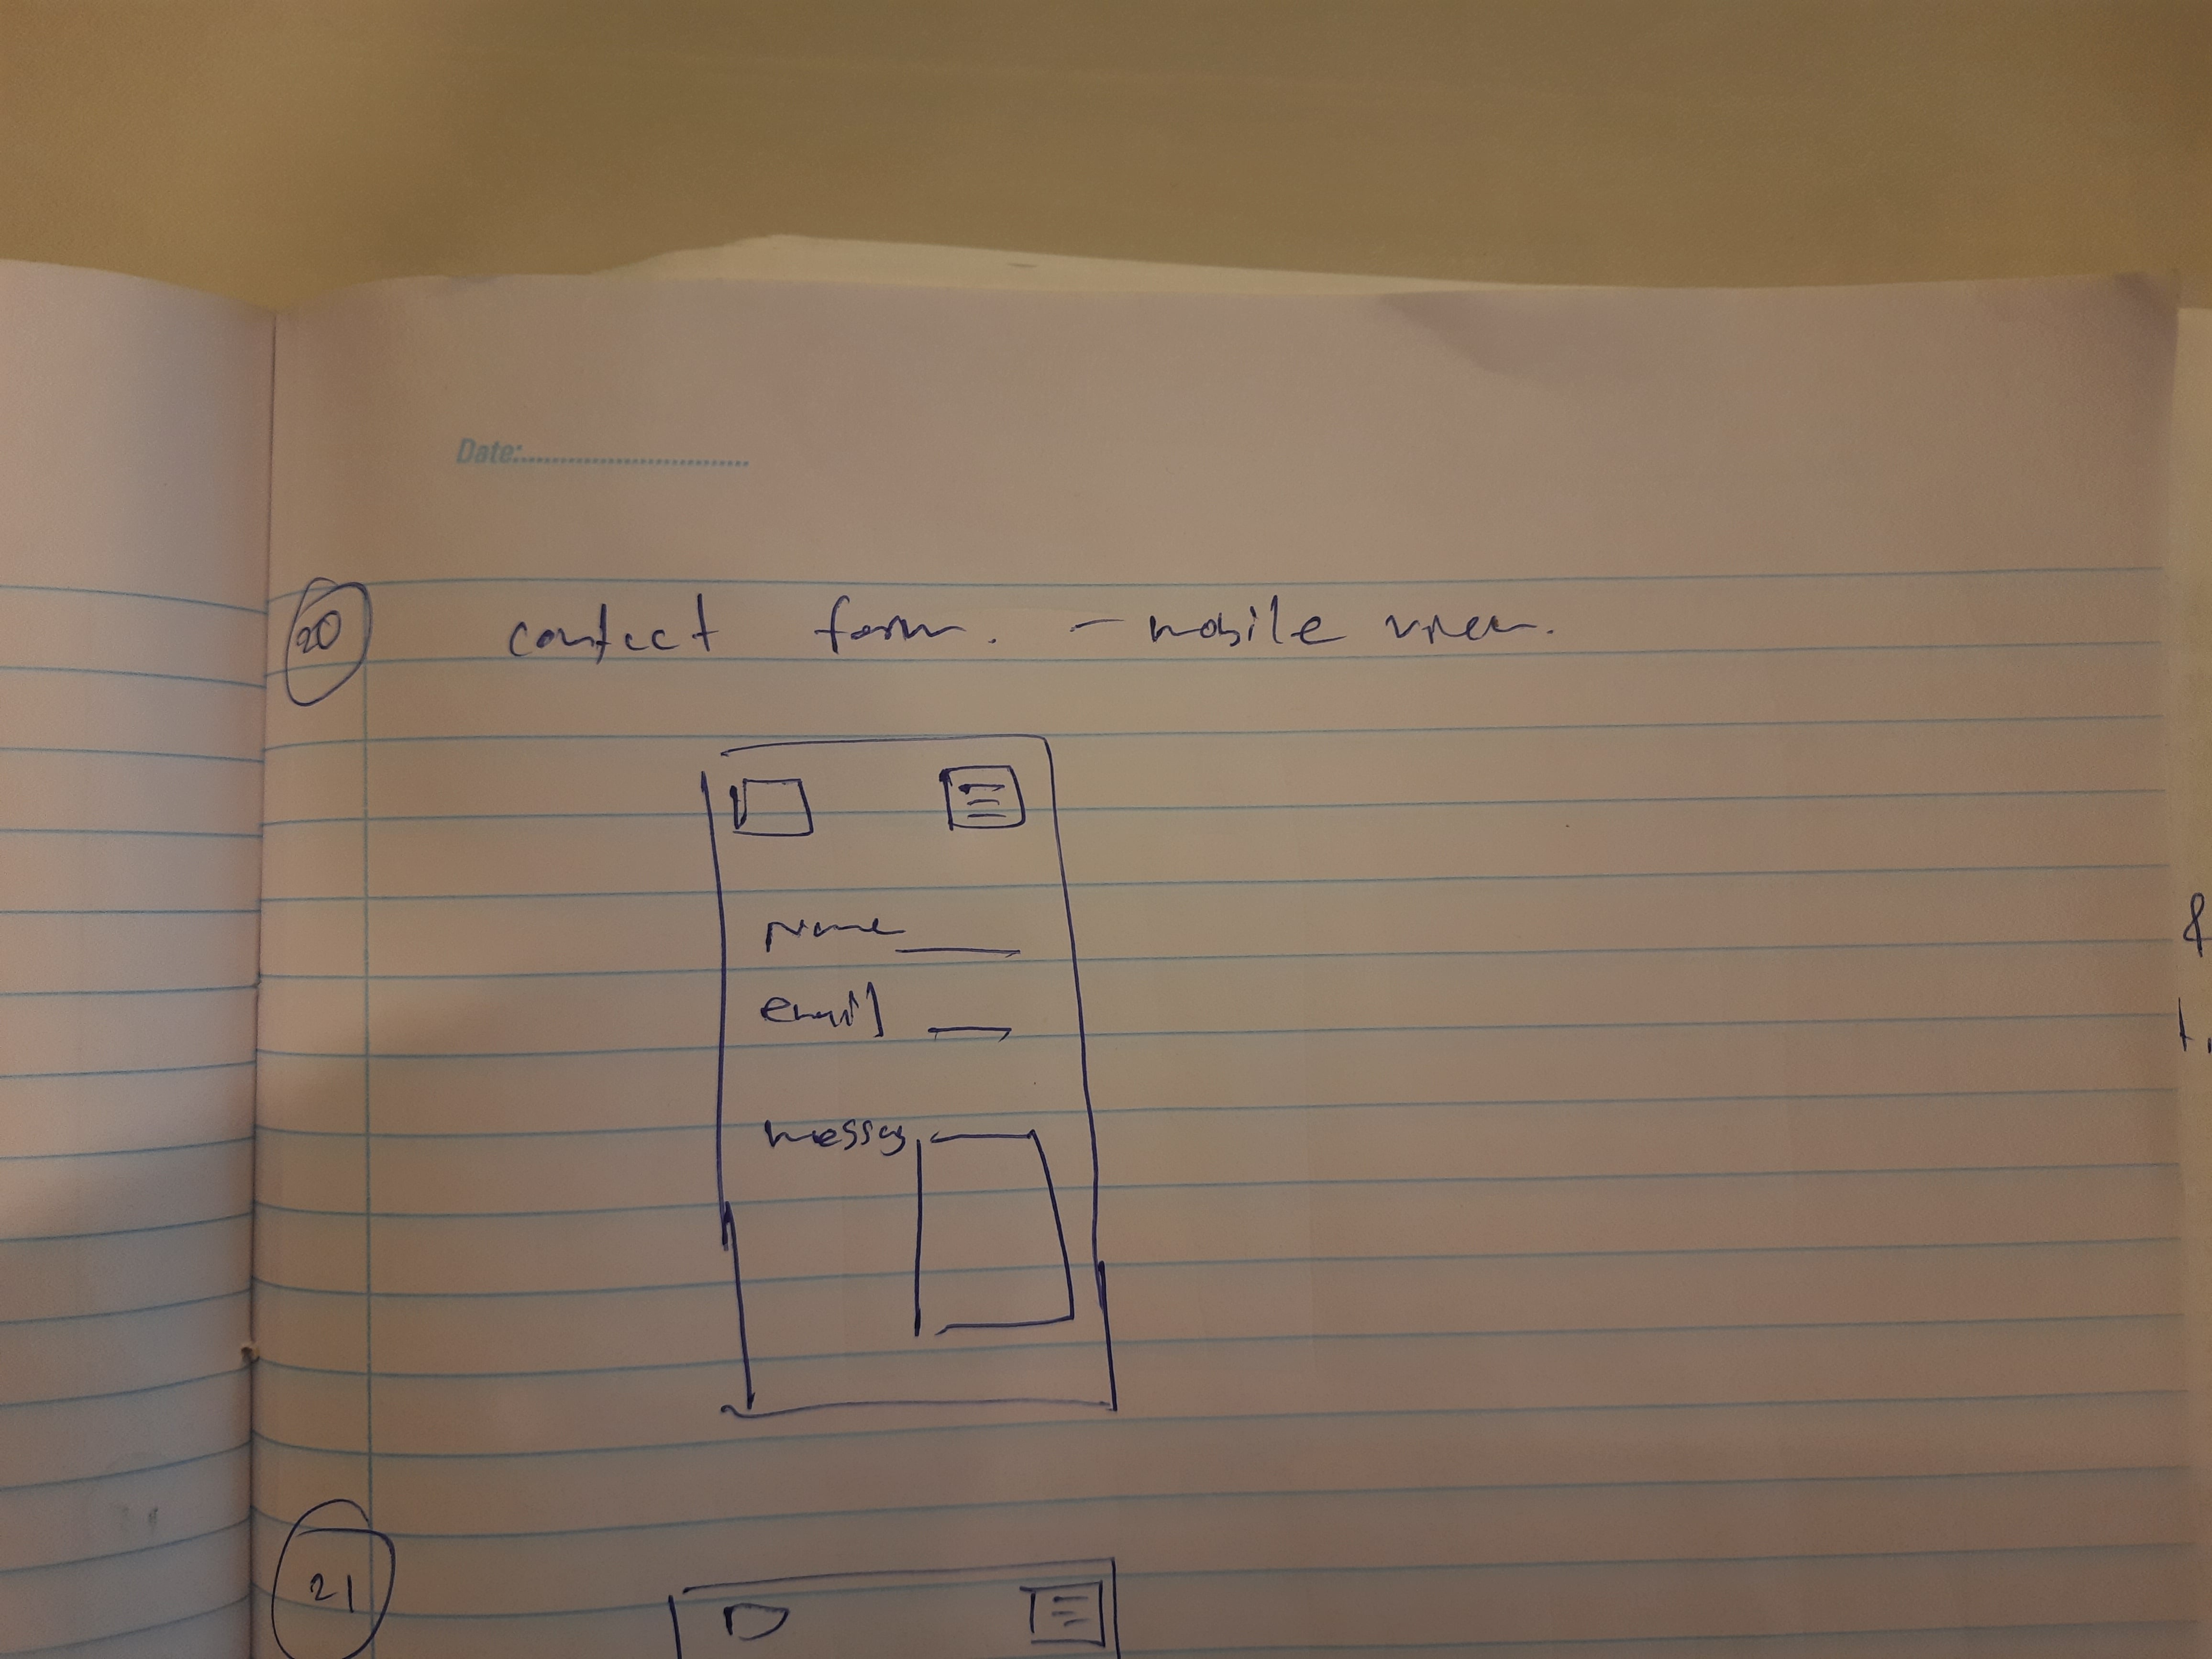 Date:
20 contact form. - mobile view.
Name
email
messag
21